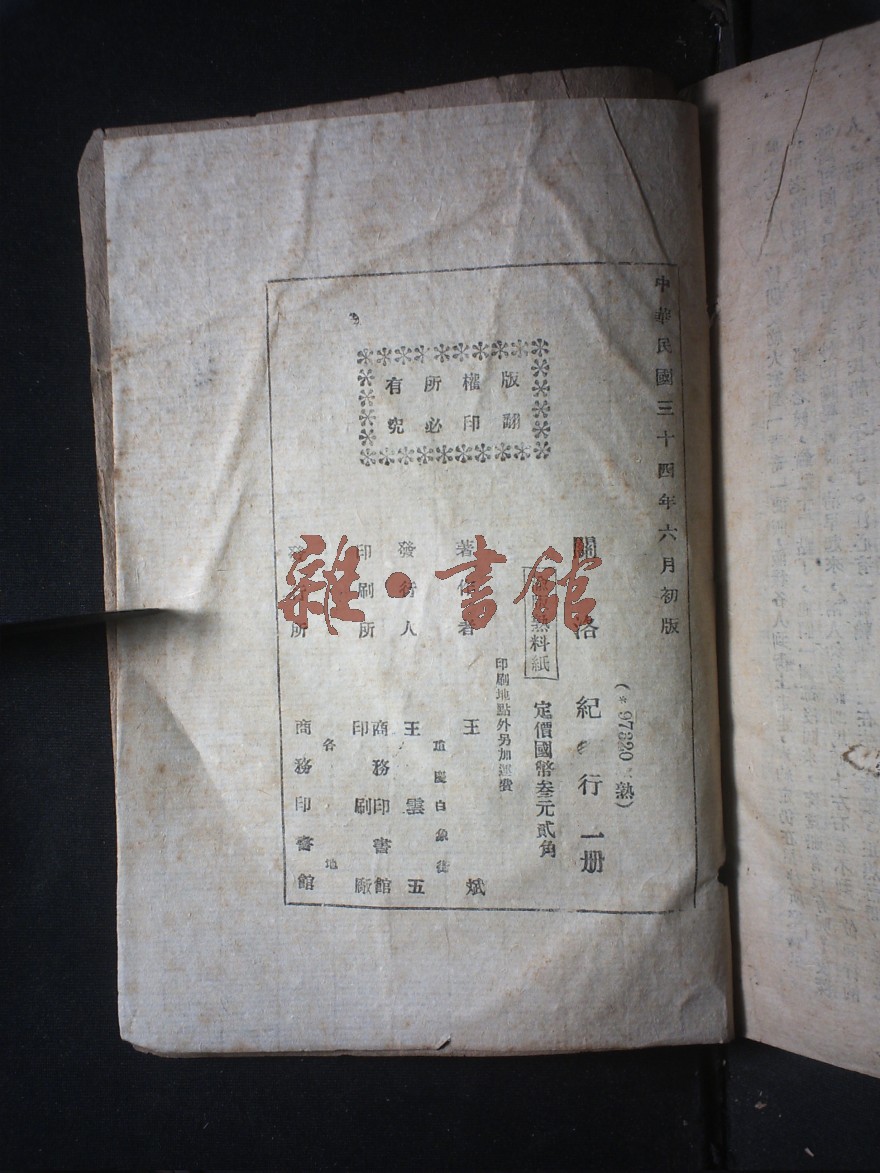 中華民國三十四年六月初版
(*97820 熟)
關洛紀行 一册
料紙 定價國幣叁元貳角
印刷地點外另加運費
著作者 王斌
重慶白象街
發行人 王雲五
印刷所 商務印書館印刷廠
各地
發行所 商務印書館
版權所有
翻印必究
雜·書館